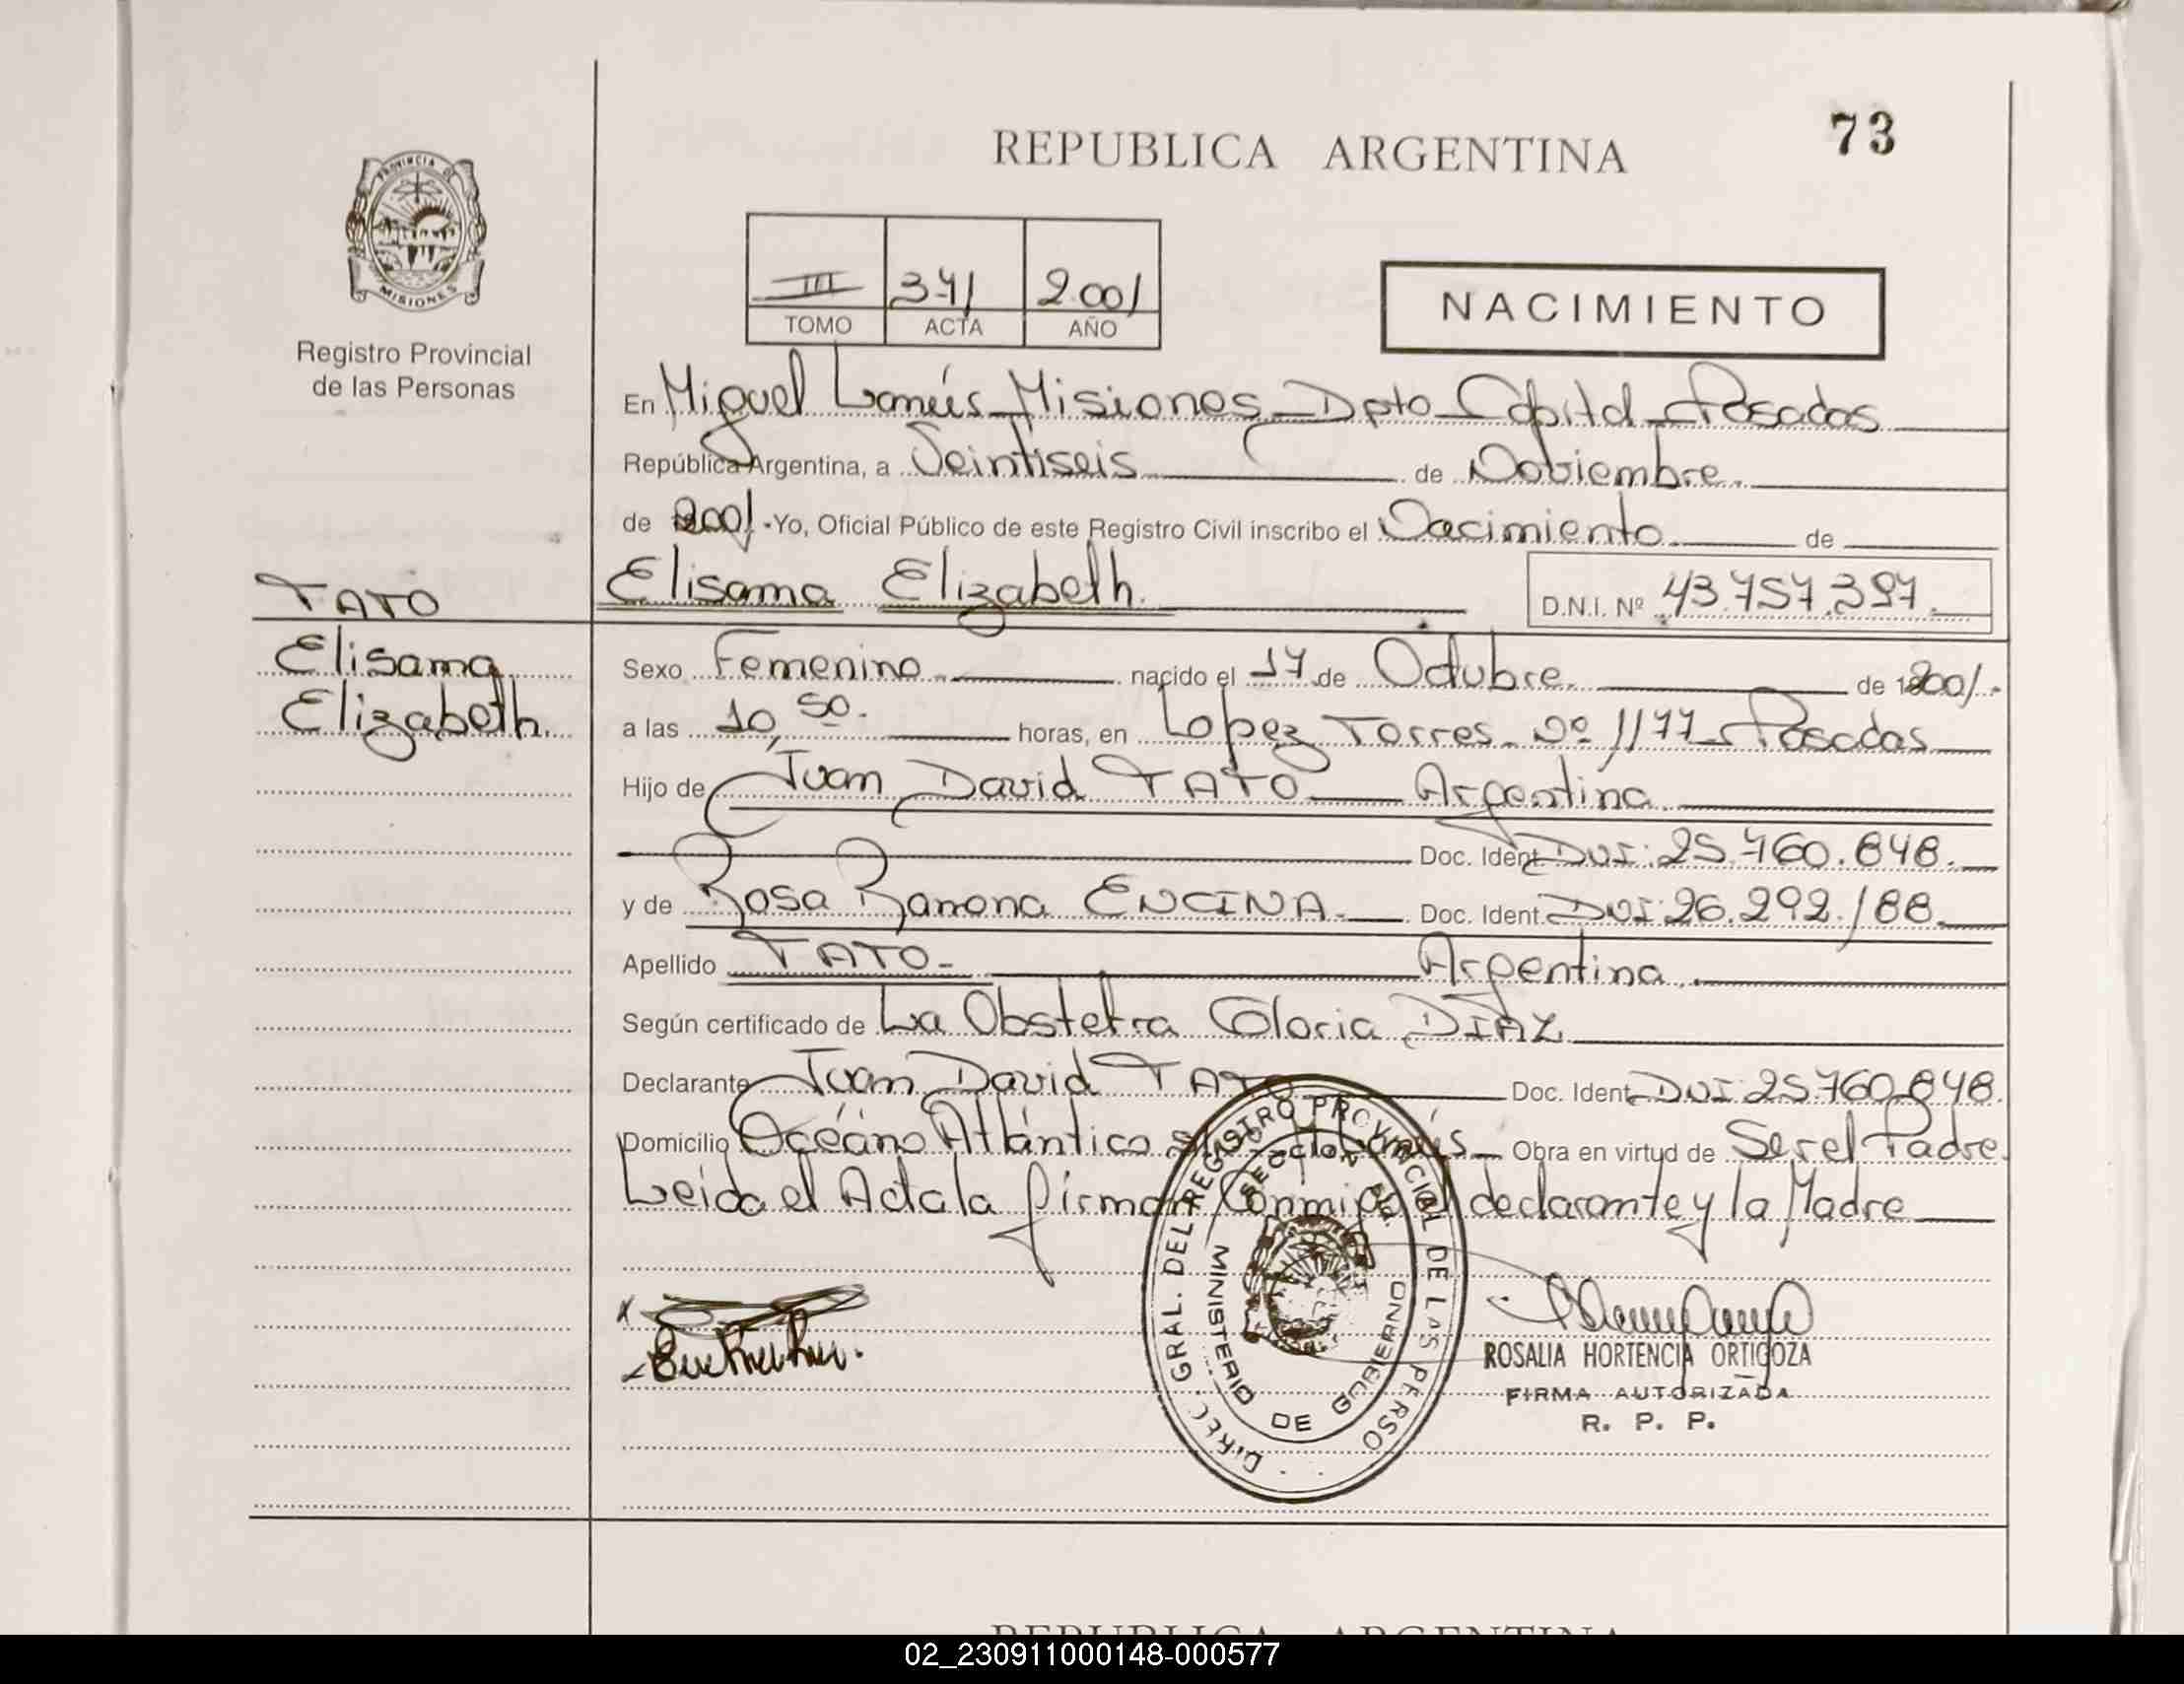 73
REPUBLICA ARGENTINA
PROVINCIA DE
MISIONES
Registro Provincial
de las Personas
III 341 2001
TOMO ACTA AÑO
NACIMIENTO
En Miguel Lanús Misiones Dpto Capital Posadas
República Argentina, a Veintiseis de Noviembre
de 2001 - Yo, Oficial Público de este Registro Civil inscribo el Nacimiento de
Elisama Elizabeth. D.N.I. Nº 43.757.397.
TATO
Elisama
Elizabeth.
Sexo Femenino nacido el 17 de Octubre. de 2001.-
a las 10,50. horas, en Lopez Torres Nº 1177 Posadas
Hijo de Juan David TATO Argentina
Doc. Ident. DNI: 25.760.848.
y de Rosa Ramona ENCINA. Doc. Ident. DNI: 26.292.188.
Apellido TATO- Argentina.
Según certificado de La Obstetra Gloria DIAZ
Declarante Juan David TATO Doc. Ident. DNI: 25.760.848.
Domicilio Océano Atlántico Lanús Obra en virtud de Ser el Padre.
Leida el Acta la firman Conmigo el declarante y la Madre
DIREC. GRAL. DEL REGISTRO PROVINCIAL DE LAS PERSO
MINISTERIO DE GOBIERNO
ROSALIA HORTENCIA ORTIGOZA
FIRMA AUTORIZADA
R. P. P.
REPUBLICA ARGENTINA
02_230911000148-000577